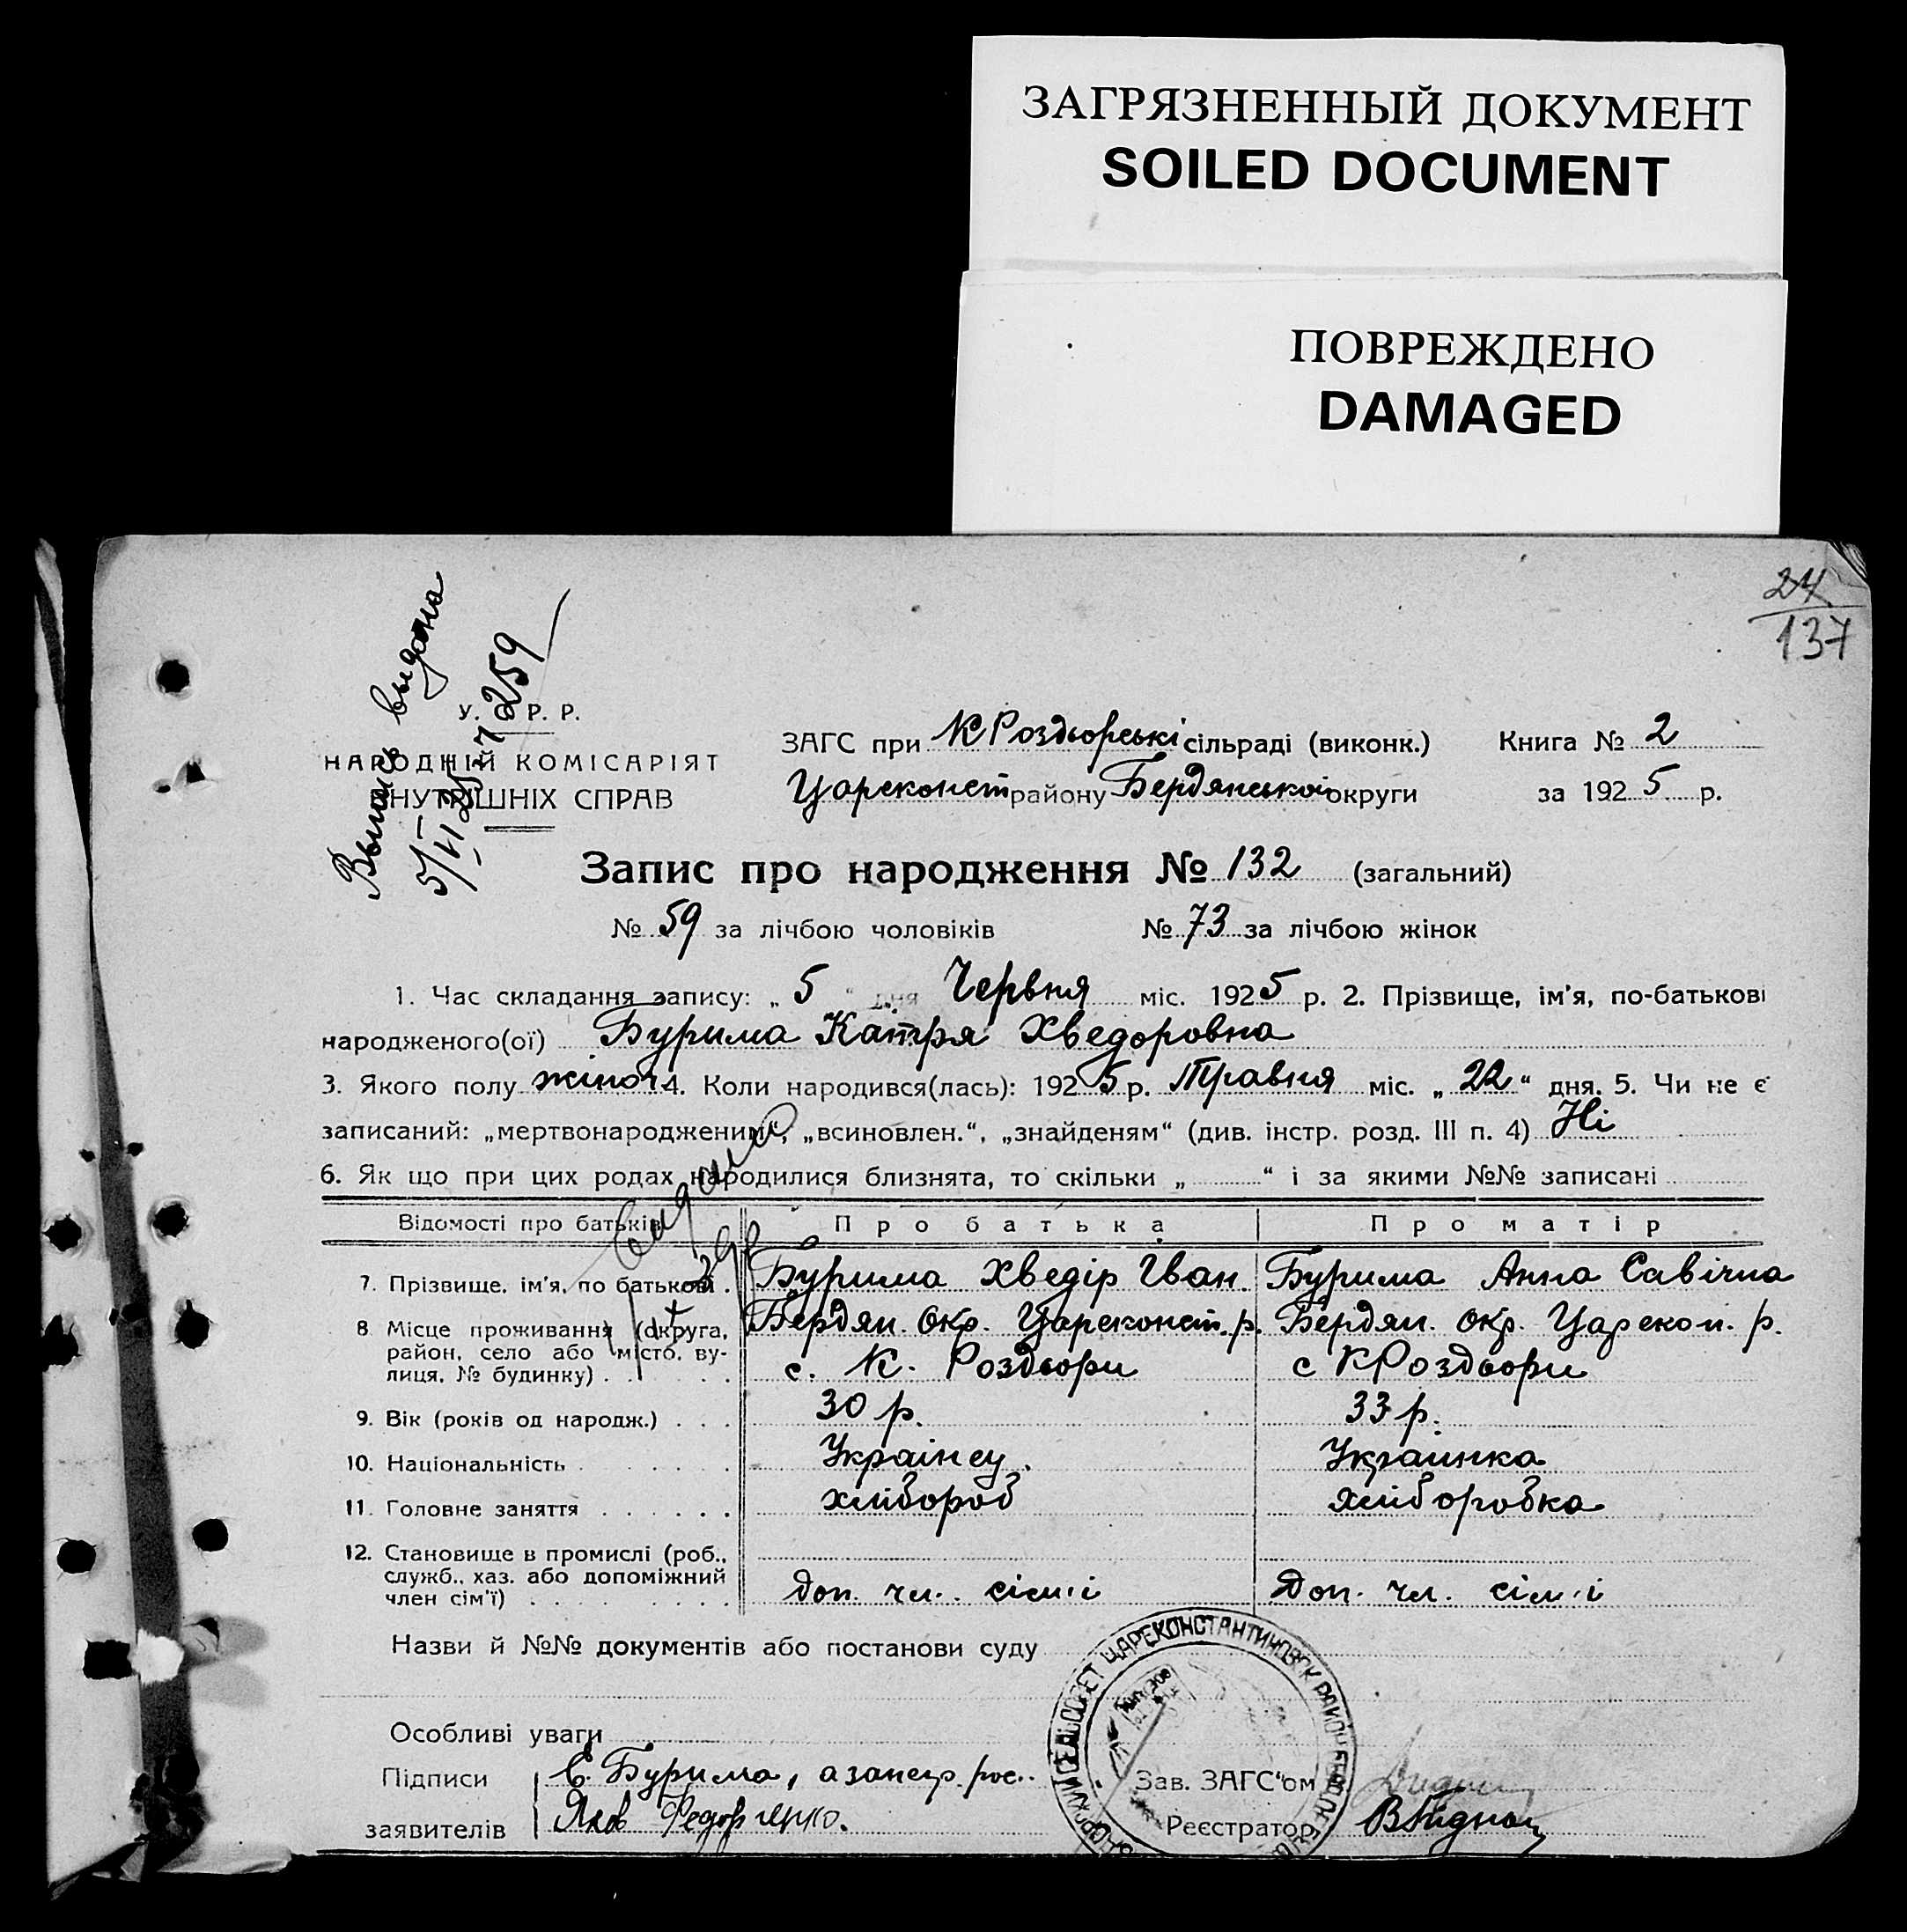 ЗАГРЯЗНЕННЫЙ ДОКУМЕНТ
SOILED DOCUMENT
ПОВРЕЖДЕНО
DAMAGED
24
137
Выпись выдана
5/VI 259
У. Р. Р.
НАРОДНІЙ КОМІСАРІЯТ
ВНУТРІШНІХ СПРАВ
ЗАГС при К Роздьорські сільраді (виконк.) Книга № 2
Цареконст району Бердянської округи за 1925 р.
Запис про народження № 132 (загальний)
№ 59 за лічбою чоловіків № 73 за лічбою жінок
1. Час складання запису: „ 5 “ дня Червня міс. 1925 р. 2. Прізвище, ім'я, по-батькові
народженого(ої) Бурима Катря Хведоровна
3. Якого полу жіноч. 4. Коли народився(лась): 1925 р. Травня міс. „ 22 “ дня. 5. Чи не є
записаний: „мертвонародженим“, „всиновлен.“, „знайденям“ (див. інстр. розд. III п. 4) Ні
6. Як що при цих родах народилися близнята, то скільки „ “ і за якими №№ записані
видана
Відомості про батьків Про батька Про матір
7. Прізвище, ім'я, по батькові . Бурима Хведір Іван. Бурима Анна Савічна
8 Місце проживання (округа, район, село або місто, ву-лиця, № будинку) . Бердян. Окр. Цареконст. р. Бердян. Окр. Царекон. р.
с. К. Роздьори с К Роздьори
9. Вік (років од народж.) . . . 30 р. 33 р.
10. Національність Українец. Украинка
11. Головне заняття хлібороб хліборобка
12. Становище в промислі (роб., служб., хаз. або допоміжний член сім'ї) Доп. чл. сім'і Доп. чл. сім'і
Назви й №№ документів або постанови суду
Особливі уваги
Підписи Бурима, а за
заявителів Яков Федорченко.
Зав. ЗАГС“ом
Реєстратор
СЕЛЬСОВЕТ ЦАРЕКОНСТАНТИНОВСК РАЙОН